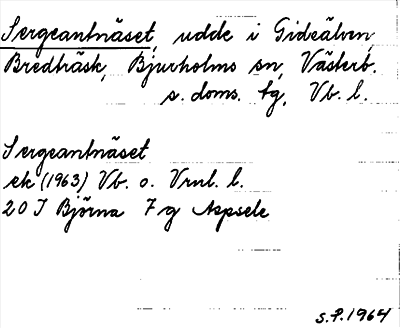 Sergeantnäset, udde i Gideälven,
Bredträsk, Bjurholms sn, Västerb.
s. doms. tg, Vb. l.
Sergeantnäset
ek (1963) Vb. o. Vrnl. l.
20 I Björna 7 g Aspsele
S.P. 1964